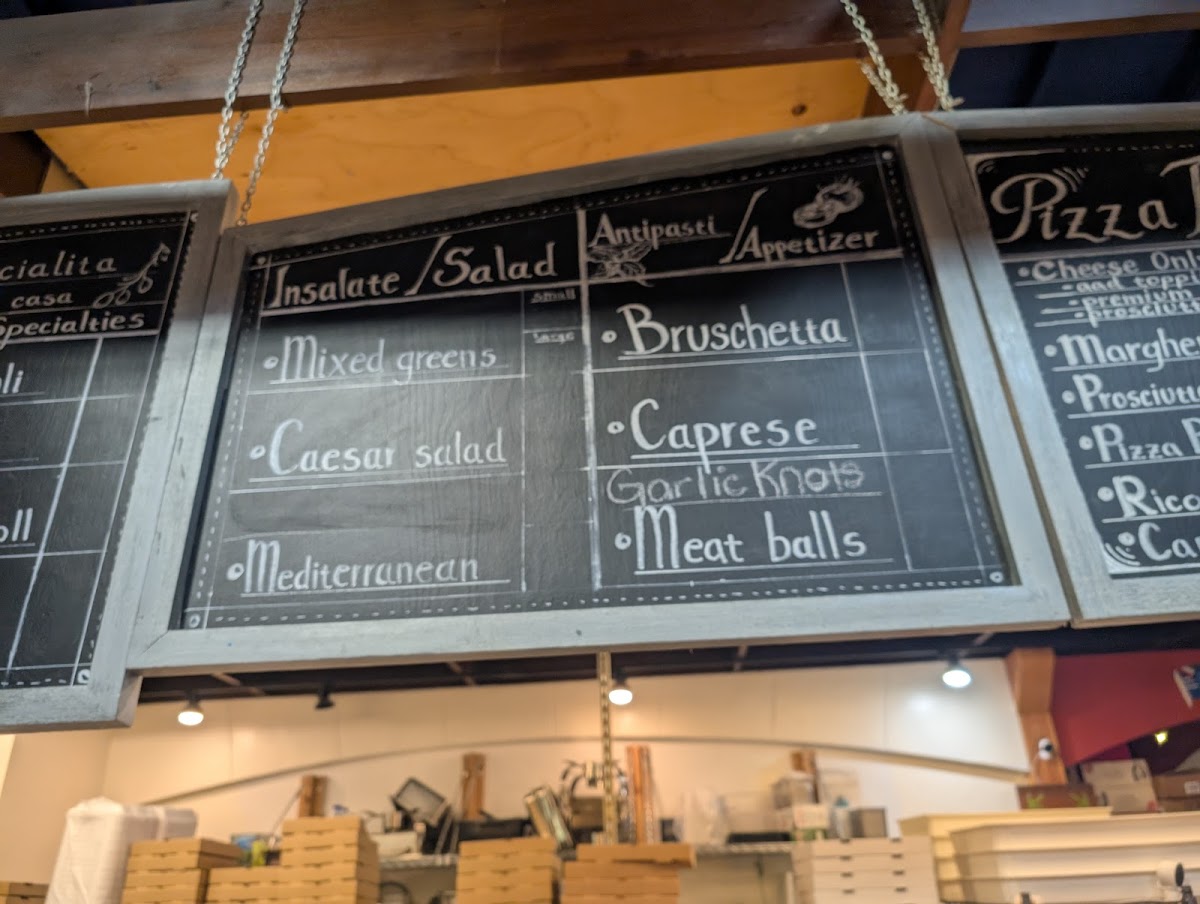 cialita
casa
Specialties
li
oll
Insalate / Salad
small
large
Mixed greens
Caesar salad
Mediterranean
Antipasti / Appetizer
Bruschetta
Caprese
Garlic Knots
Meat balls
Pizza
Cheese Onl
- add topp
- premium
- prosciutt
Margher
Prosciutt
Pizza
Rico
Ca